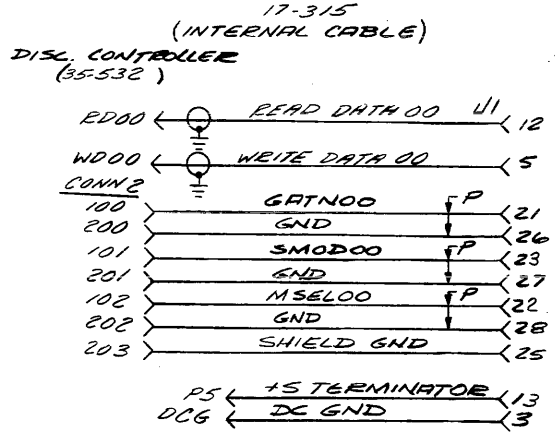 17-315
(INTERNAL CABLE)
DISC. CONTROLLER
(35-532)
RD00 READ DATA 00 U1 12
WD00 WRITE DATA 00 5
CONN2
100 GATN00 P 21
200 GND 26
101 SMOD00 P 23
201 GND 27
102 MSEL00 P 22
202 GND 28
203 SHIELD GND 25
P5 +5 TERMINATOR 13
DCG DC GND 3